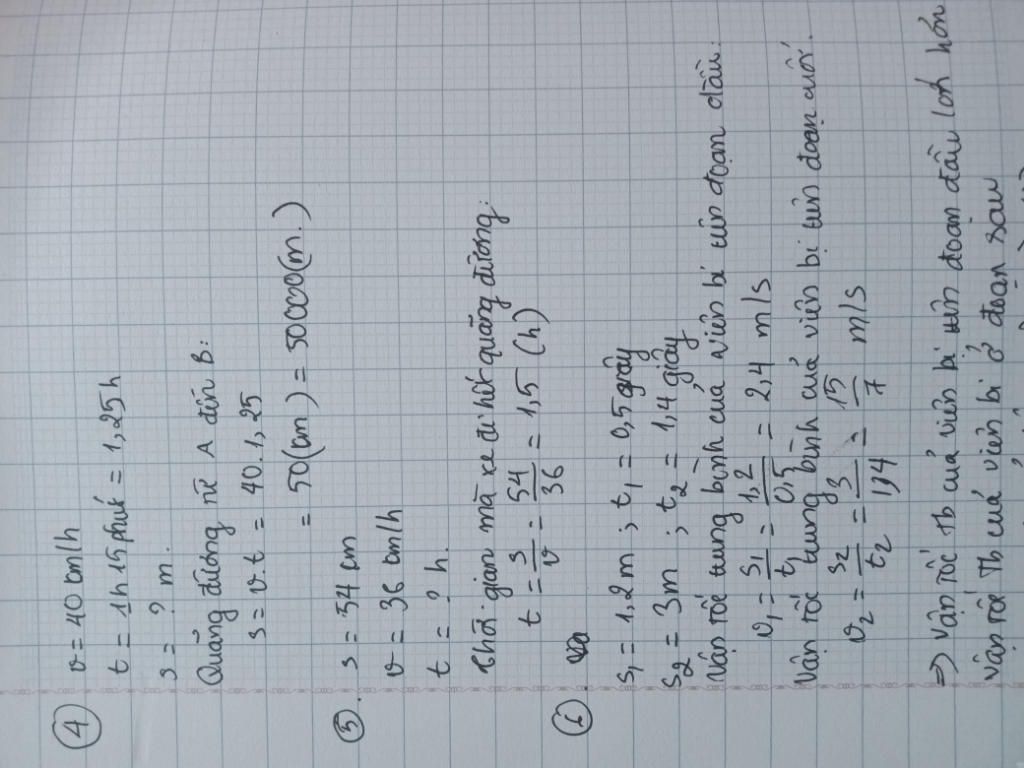 ④ v = 40 km/h
t = 1h 15 phút = 1,25h
s = ? m.
Quãng đường từ A đến B:
s = v.t = 40.1,25
= 50(km) = 50000(m.)
⑤. s = 54 km
v = 36 km/h
t = ? h.
Thời gian mà xe đi hết quãng đường:
t = s/v = 54/36 = 1,5 (h)
⑥.
s1 = 1,2m ; t1 = 0,5 giây
s2 = 3m ; t2 = 1,4 giây
Vận tốc trung bình của viên bi trên đoạn đầu:
v1 = s1/t1 = 1,2/0,5 = 2,4 m/s
Vận tốc trung bình của viên bi trên đoạn cuối.
v2 = s2/t2 = 3/1,4 = 15/7 m/s
=> Vận tốc Tb của viên bi trên đoạn đầu lớn hơn
vận tốc Tb của viên bi ở đoạn sau